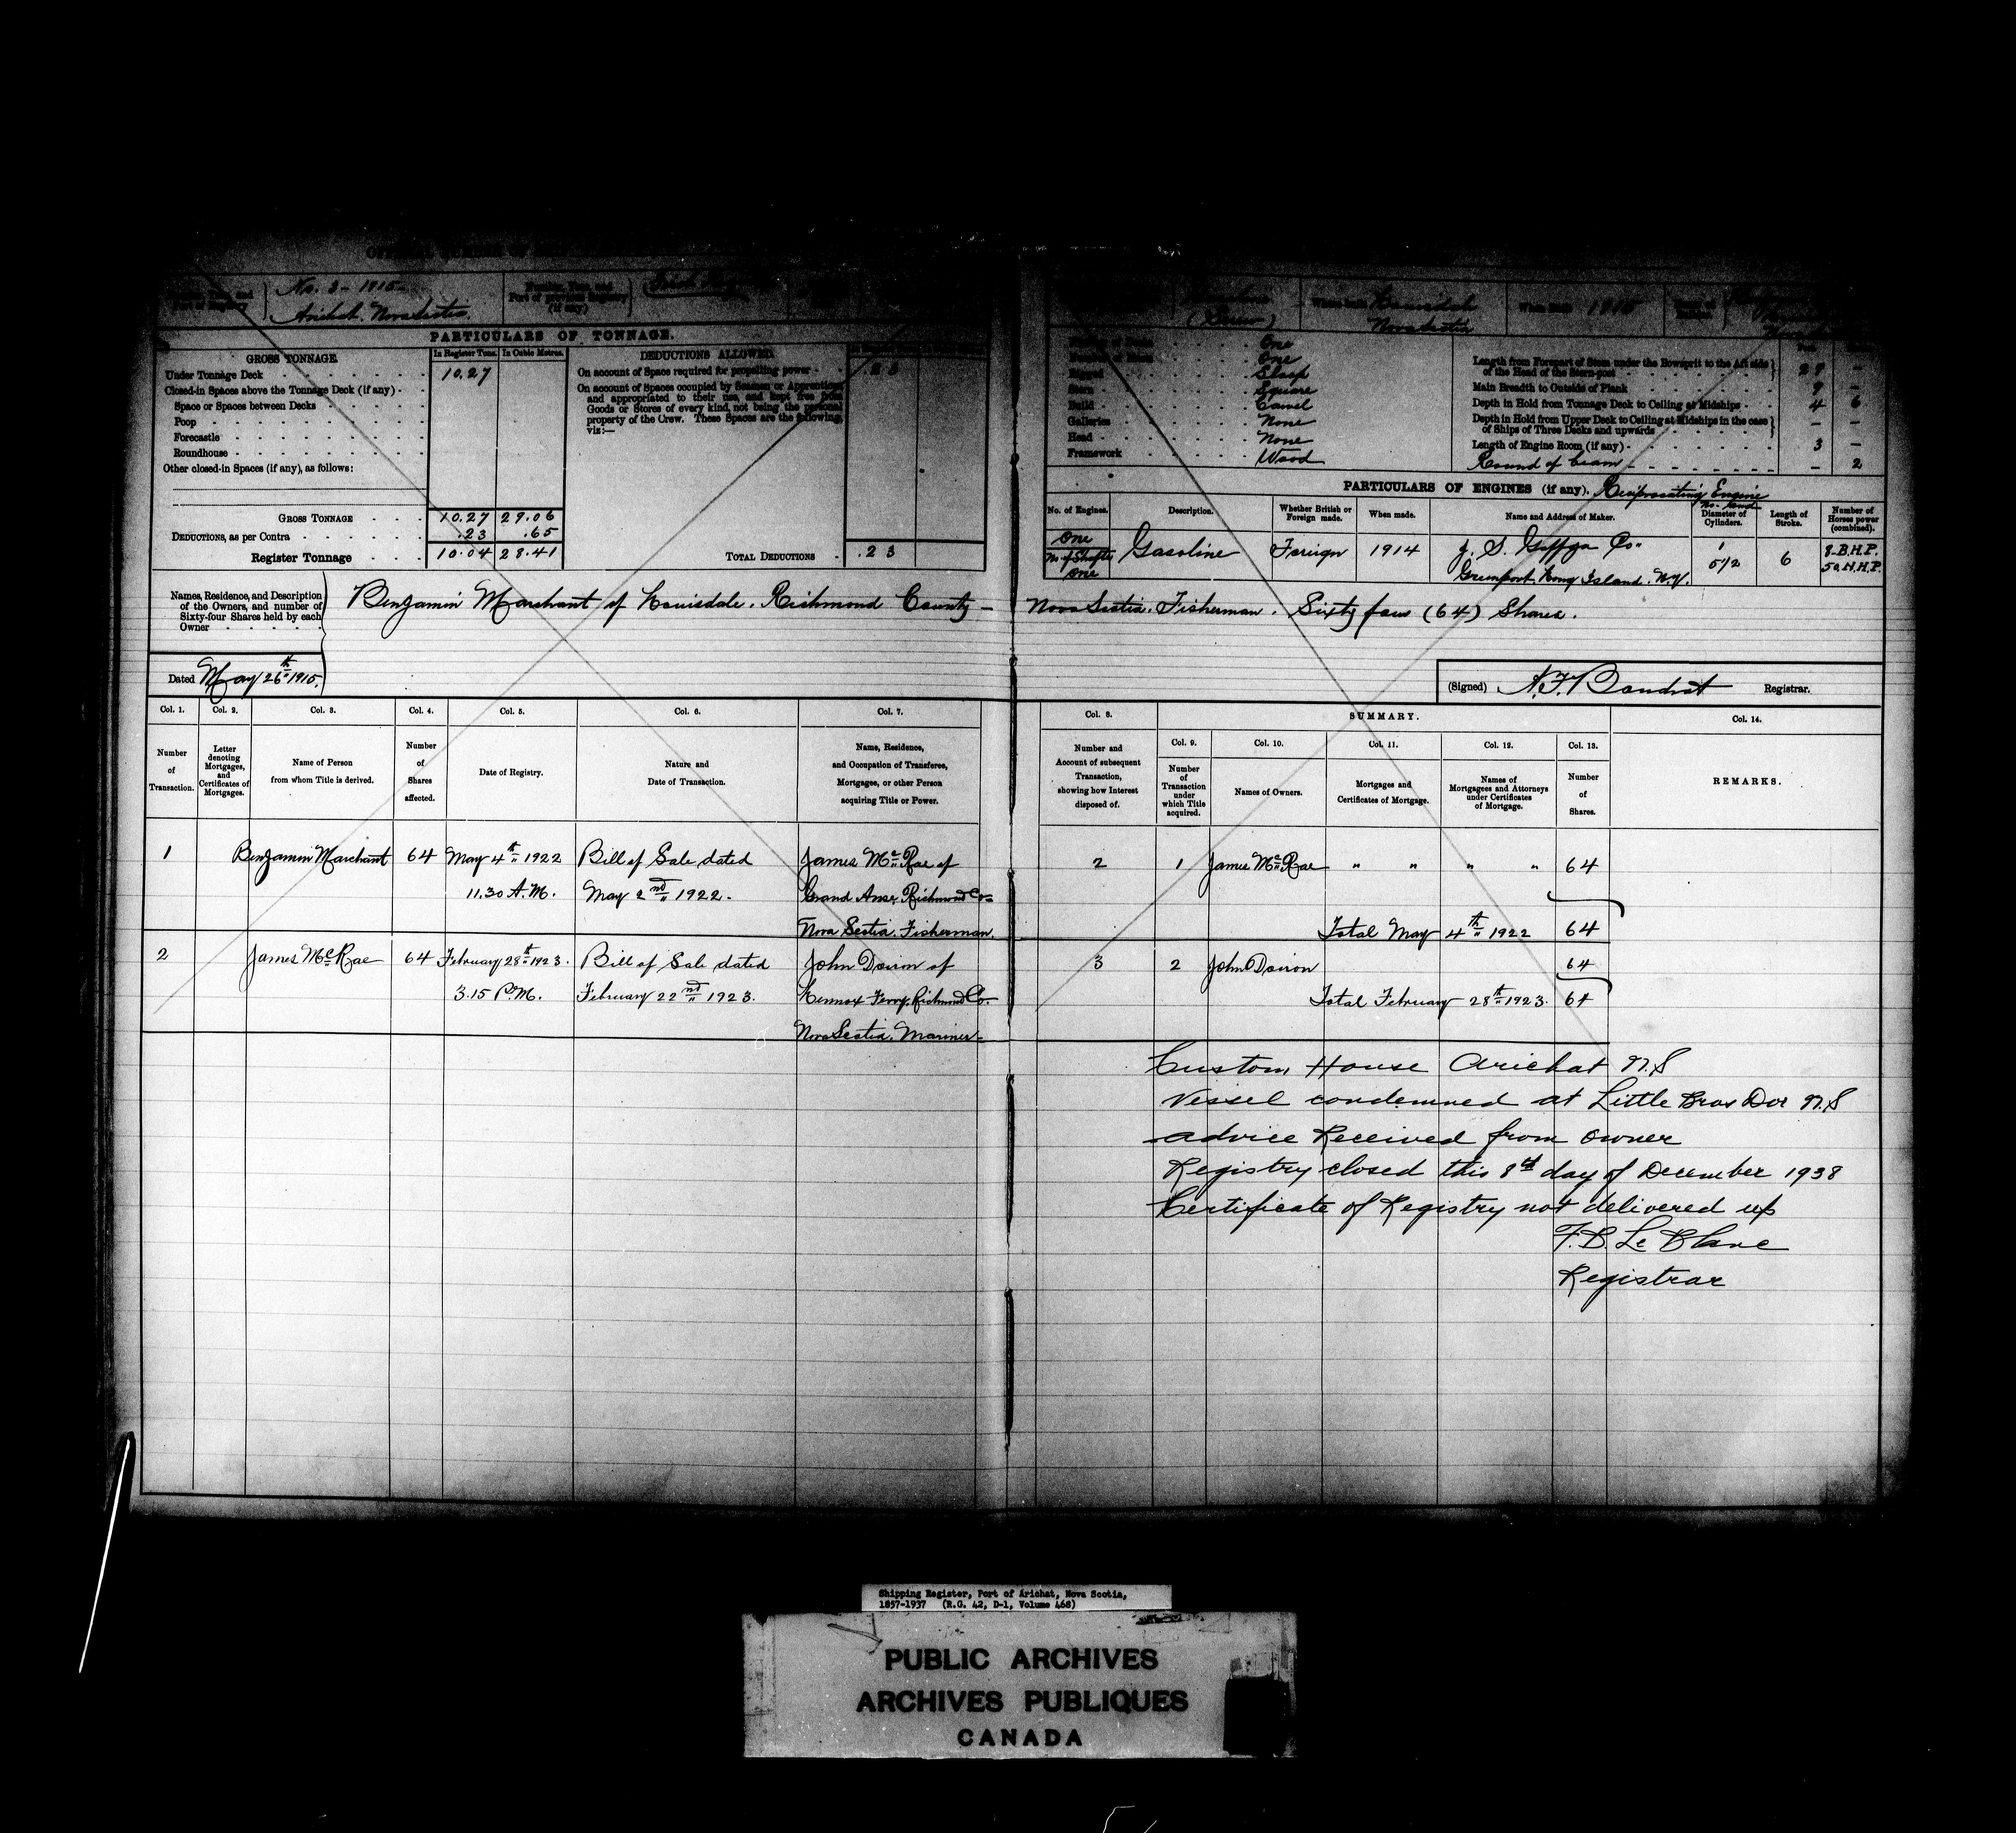 No. 3 - 1915 -
Arichat. Nova Scotia
Port of Registry
(if any)
PARTICULARS OF TONNAGE.
GROSS TONNAGE.
In Register Tons. In Cubic Metres.
Under Tonnage Deck 10.27
Closed-in Spaces above the Tonnage Deck (if any)
Space or Spaces between Decks
Poop
Forecastle
Roundhouse
Other closed-in Spaces (if any), as follows:
GROSS TONNAGE 10.27 29.06
DEDUCTIONS, as per Contra .23 .65
Register Tonnage 10.04 28.41
DEDUCTIONS ALLOWED.
On account of Space required for propelling power .23
On account of Spaces occupied by Seamen or Apprentices
and appropriated to their use, and kept free from
Goods or Stores of every kind, not being the personal
property of the Crew. These Spaces are the following,
viz:—
TOTAL DEDUCTIONS .23
(Screw)
Nova Scotia
When built 1915
One
One
Rigged Sloop
Stern Square
Build Carvel
Galleries None
Head None
Framework Wood
Length from Forepart of Stem under the Bowsprit to the Aft side
of the Head of the Stern-post 29 —
Main Breadth to Outside of Plank 9 —
Depth in Hold from Tonnage Deck to Ceiling at Midships 4 6
Depth in Hold from Upper Deck to Ceiling at Midships in the case
of Ships of Three Decks and upwards — —
Length of Engine Room (if any) 3 —
Round of beam — 2
PARTICULARS OF ENGINES (if any). Reciprocating Engine
No. of Engines. Description. Whether British or Foreign made. When made. Name and Address of Maker. No. and Diameter of Cylinders. Length of Stroke. Number of Horses power (combined).
One
No of Shafts
One
Gasoline Foreign 1914
Greenport. Long Island. N.Y.
1
5 1/2 6
8 B.H.P.
Names, Residence, and Description
of the Owners, and number of
Sixty-four Shares held by each
Owner
Benjamin Marchant of Louisdale. Richmond County — Nova Scotia. Fisherman. Sixty four (64) Shares.
Dated May 26th 1915.
(Signed) Registrar.
Col. 1. Col. 2. Col. 3. Col. 4. Col. 5. Col. 6. Col. 7.
Number of Transaction.
Letter denoting Mortgages, and Certificates of Mortgages.
Name of Person from whom Title is derived.
Number of Shares affected.
Date of Registry.
Nature and Date of Transaction.
Name, Residence, and Occupation of Transferee, Mortgagee, or other Person acquiring Title or Power.
Col. 8. SUMMARY. Col. 14.
Col. 9. Col. 10. Col. 11. Col. 12. Col. 13.
Number and Account of subsequent Transaction, showing how Interest disposed of.
Number of Transaction under which Title acquired.
Names of Owners.
Mortgages and Certificates of Mortgage.
Names of Mortgagees and Attorneys under Certificates of Mortgage.
Number of Shares.
REMARKS.
1 Benjamin Marchant 64 May 4th 1922 Bill of Sale dated James McRae of
11.30 A.M. May 2nd 1922. Grand Anse, Richmond Co—
Nova Scotia. Fisherman.
2 1 James McRae " " " " 64
Total May 4th 1922 64
2 James McRae 64 February 28th 1923. Bill of Sale dated John Doiron of
3.15 P.M. February 22nd 1923. Lennox Ferry, Richmond Co—
Nova Scotia. Mariner—
3 2 John Doiron 64
Total February 28th 1923. 64
Custom House Arichat N.S
Vessel condemned at Little Bras Dor N.S
advice Received from owner
Registry closed this 8th day of December 1938
Certificate of Registry not delivered up
F.B. Le Blanc
Registrar
Shipping Register, Port of Arichat, Nova Scotia,
1857-1937 (R.G. 42, D-1, Volume 468)
PUBLIC ARCHIVES
ARCHIVES PUBLIQUES
CANADA